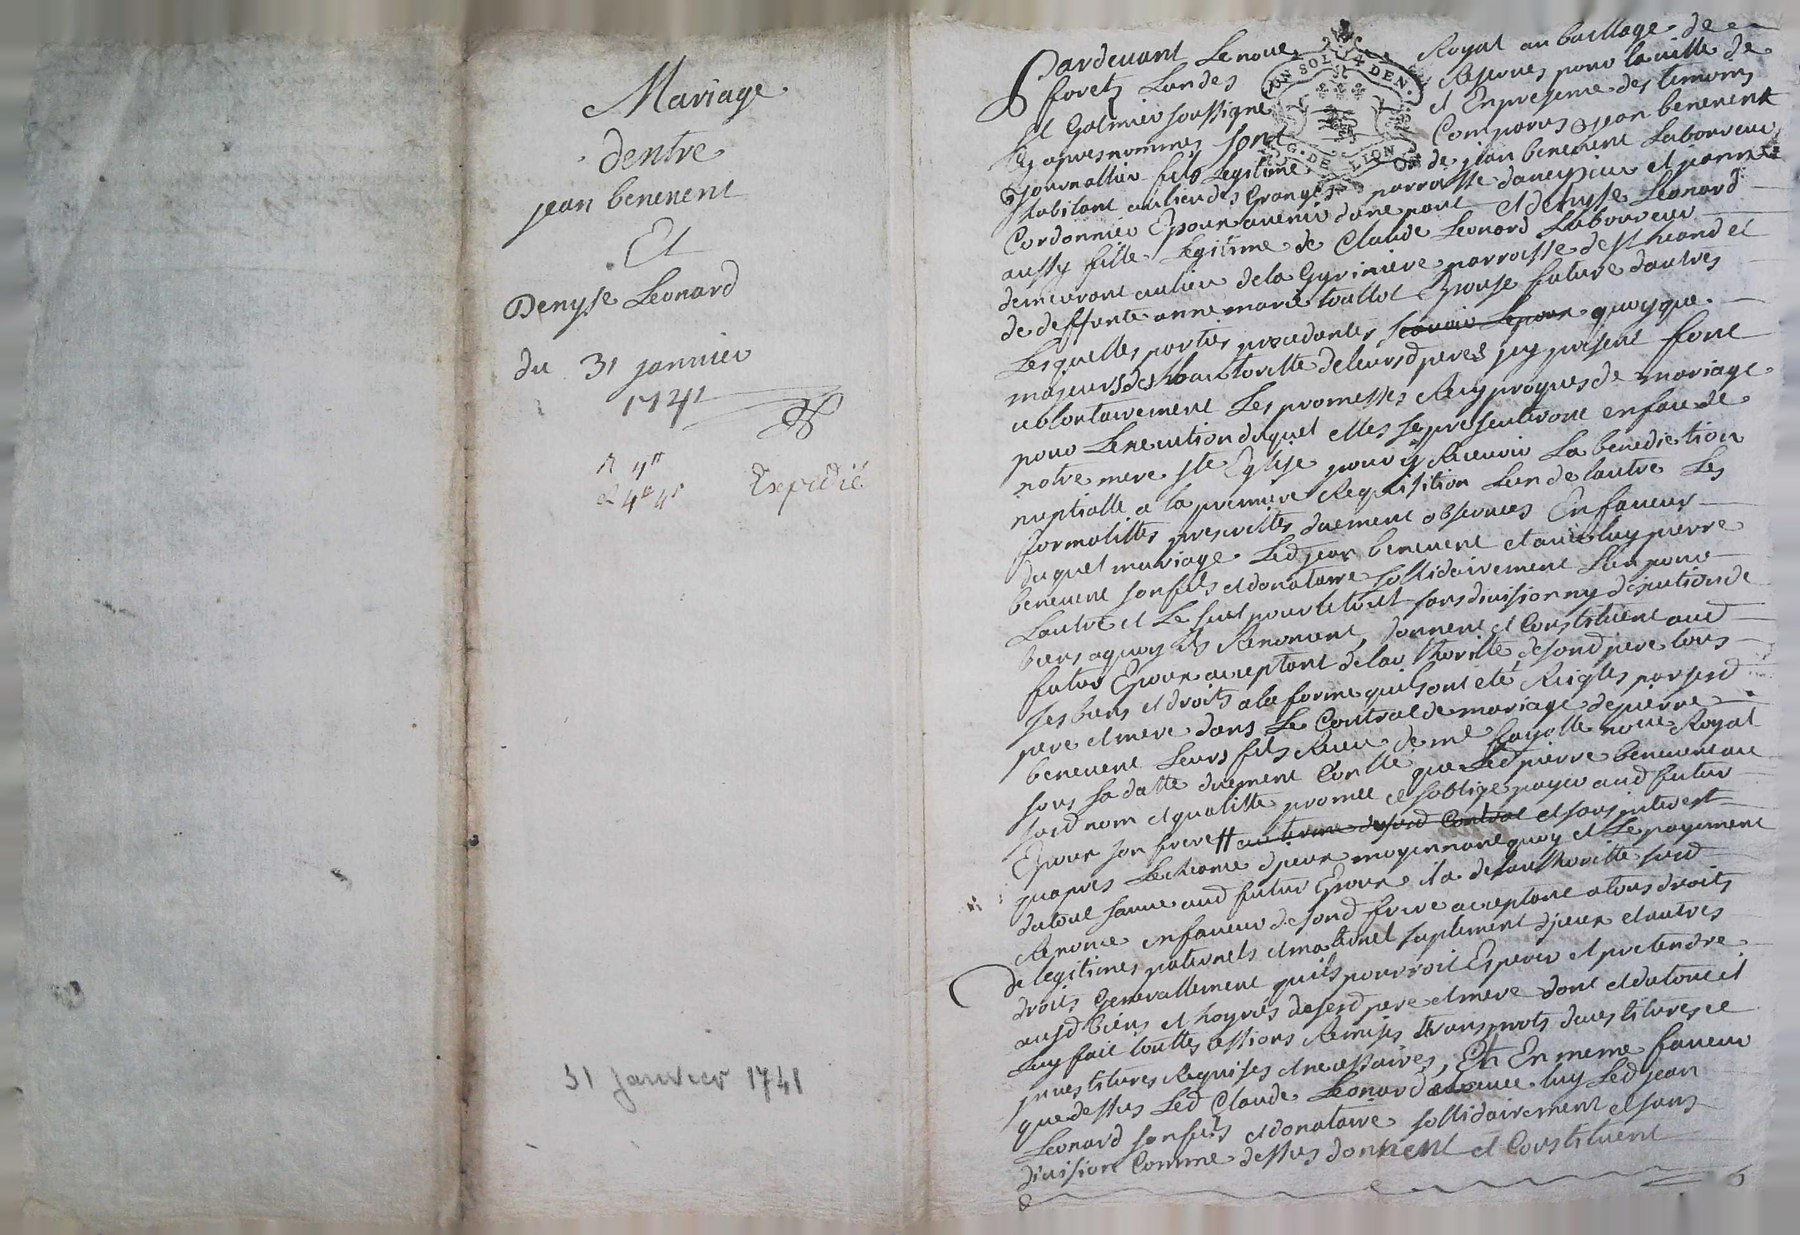 Mariage
dentre
jean benevent
Et
Denyse Leonard
du 31 janvier
1741
Expedié
31 Janvier 1741
UN SOL 4 DEN.
G. DE LION
Pardevant Le no.re Royal au baillage de
foretz Landes Reserves pour la ville de
St Galmier soussigné et En presence des temoins
cy apres nommes sont Comparus jean benevent
journallier fils Legitime de jean benevent Laboureur
habitant au lieu des granges parroisse daveyzieu et jeanne
Cordonnier Epoux avenir dune part et denyse Leonard
aussy fille Legitime de Claude Leonard Laboureur
demeurant au lieu de la Gyriniere parroisse de St
de deffunte anne marie Epouse future dautres
Lesquelles parties procedantes scavoir Lepoux quoyque
majeurs de lauthoritte de leursd peres icy present font
volontairement Les promesses Reciproques de mariage
pour Lexecution duquel elles se presenteront en face de
notre mere ste Eglise pour y Recevoir La benediction
nuptialle a la premiere Requisition Lun de lautre Les
formalittes prescrittes duement observees En faveur
duquel mariage Led jean benevent et avec luy pierre
benevent son fils et donataire sollidairement Lun pour
Lautre et Le seul pour le tout sans division ny discution de
biens a quoy ils Renoncent, donnent et Constituent aud
futur Epoux acceptant de lauthoritte de sond pere tous
ses biens et droits a la forme quils ont eté Reigles par sesd
pere et mere dans Le Contrat de mariage de pierre
benevent Leurs fils Receu de me fayolle no.re Royal
sous sa datte duement Conllé que Led pierre benevent au
susd nom et qualitte promet et soblige payer aud futur
Epoux son frere # au terme dud Contrat et sans interest
quapres Lecheance diceux moyennant quoy et Le payement
du tout sauve aud futur Epoux il a de lauthoritte susd
Renoncé en faveur de sond frere acceptant a tous droits
de legitimes paternels et maternel suplement diceux et autres
droits Generallement quils pourroit Esperer et pretendre
ausd biens et hoyries de sesd pere et mere dont et du tout il
Luy fait touttes Cessions Remises transports
Requises et necessaires, Et En meme faveur
que dessus Led Claude Leonard avec luy Led jean
Leonard son fils et donataire sollidairement et sans
division Comme dessus donnent et Constituent